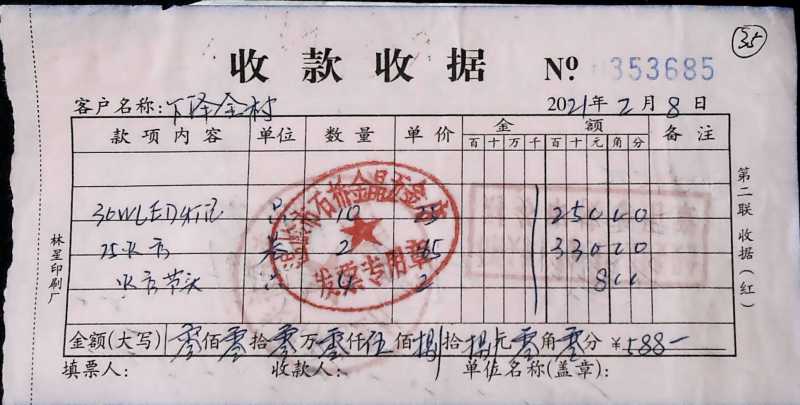 35
收款收据 Nº 353685
客户名称: 下泽金村 2021年2月8日
款项内容 单位 数量 单价 金额 备注
百十万千百十元角分
30WLED灯泡 只 10 25 25000
25水管 卷 2 165 33000
水管节头 只 4 2 800
金额(大写) 零佰零拾零万零仟伍佰捌拾捌元零角零分 ¥588—
填票人: 收款人: 单位名称(盖章):
石桥金晶五金店
发票专用章
第二联 收据(红)
林星印刷厂